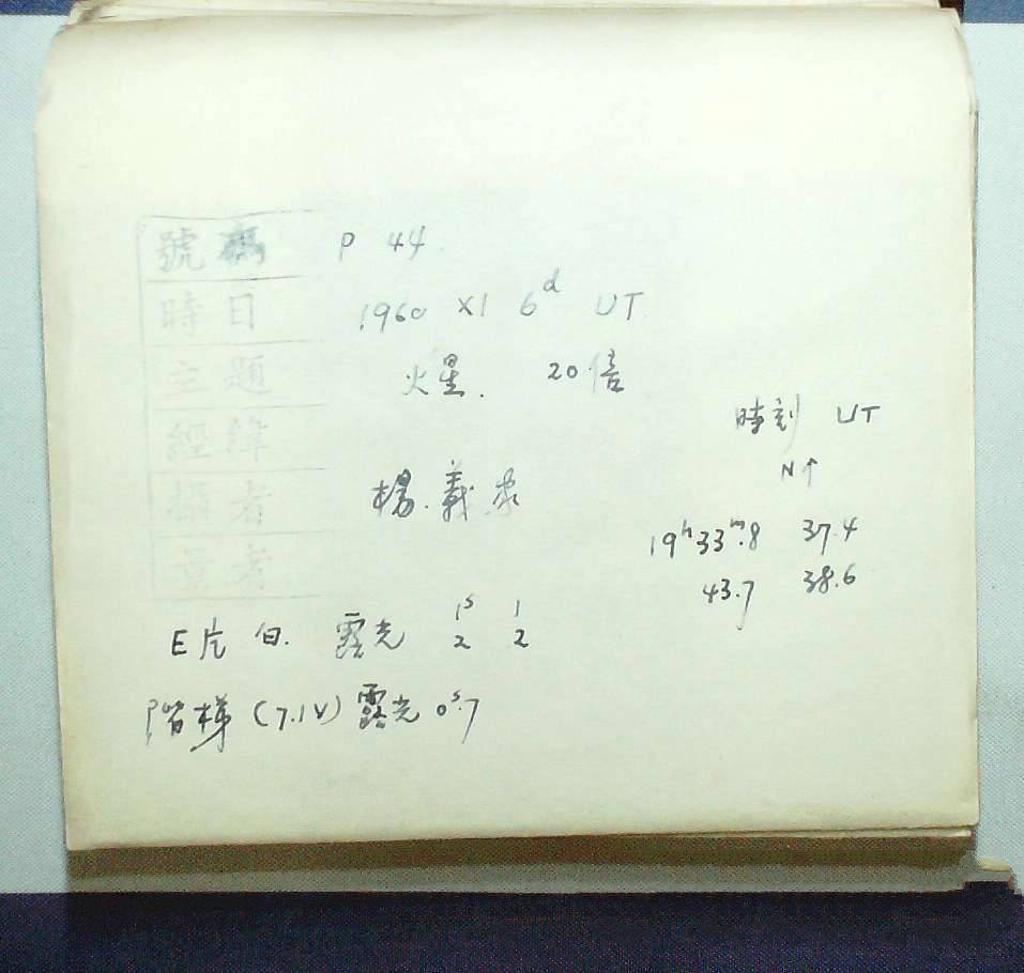 號碼 P 44
時日 1960 XI 6d UT
主題 火星. 20倍
經緯
攝者 楊.義
量者
時刻 UT
N↑
19h33m.8 37.4
43.7 38.6
E片 白. 露光 1s 1
2 2
階梯 (7.1V) 露光 0s.7